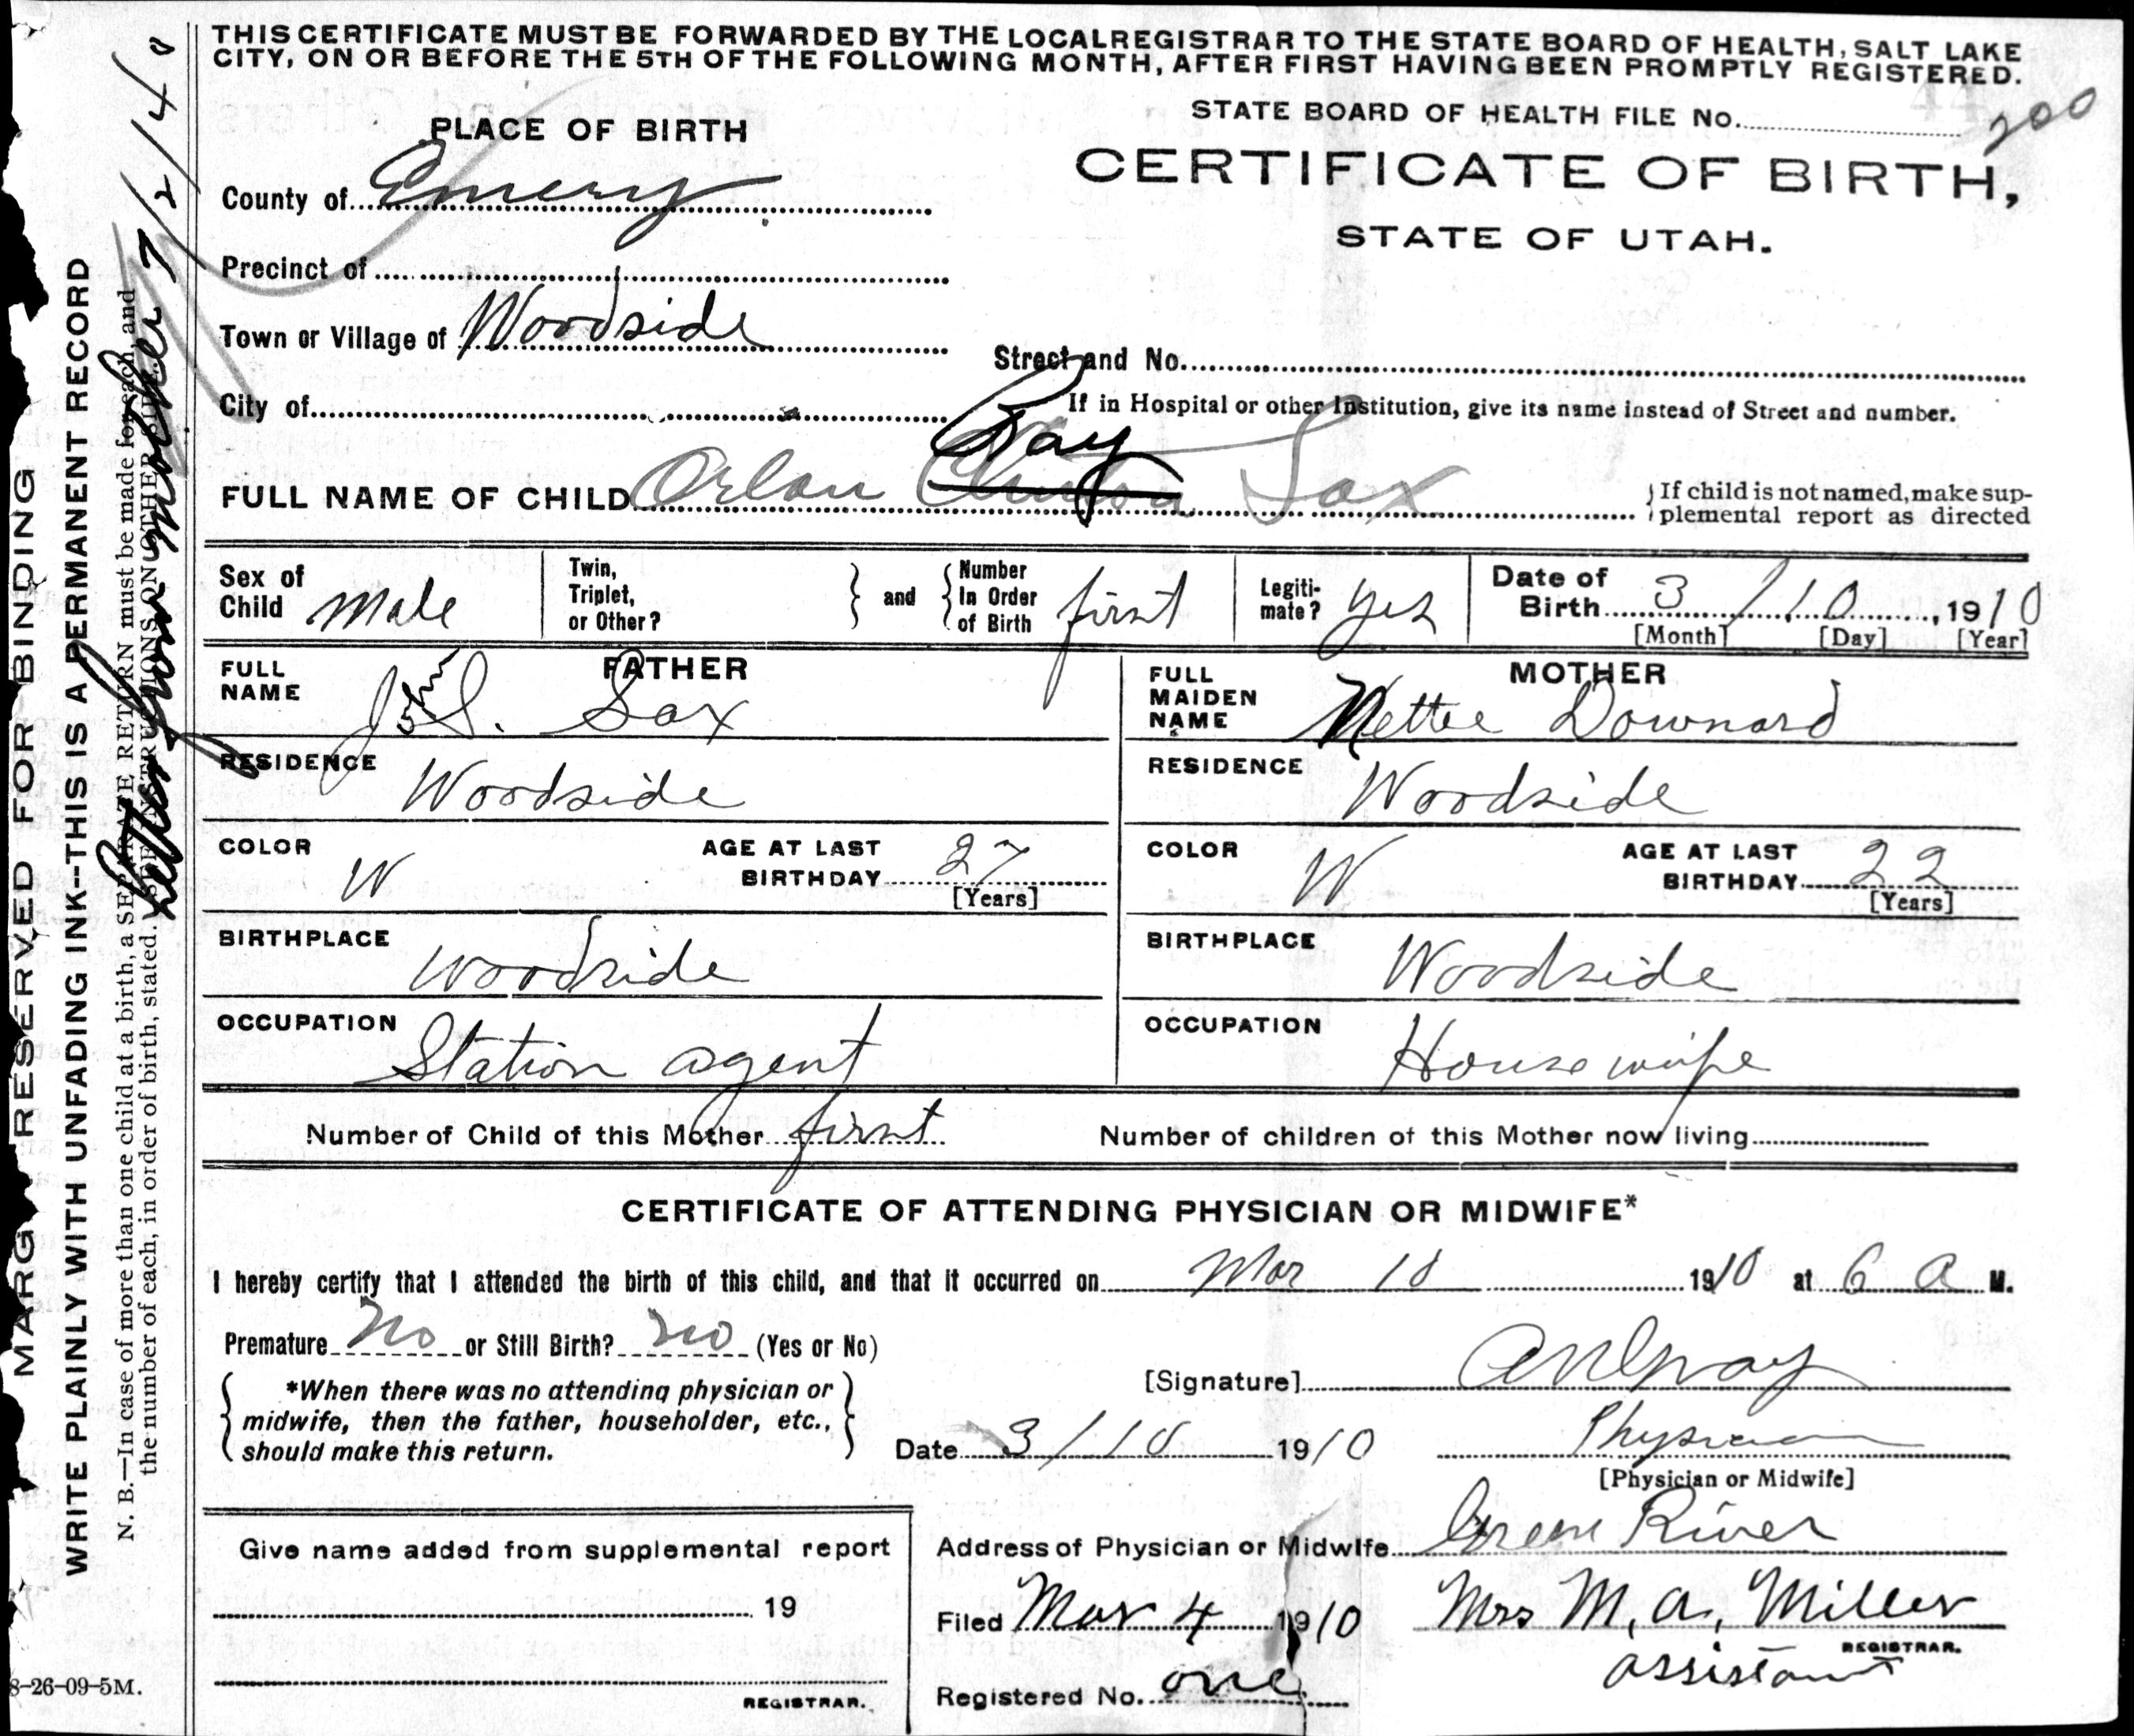 THIS CERTIFICATE MUST BE FORWARDED BY THE LOCAL REGISTRAR TO THE STATE BOARD OF HEALTH, SALT LAKE
CITY, ON OR BEFORE THE 5TH OF THE FOLLOWING MONTH, AFTER FIRST HAVING BEEN PROMPTLY REGISTERED.
STATE BOARD OF HEALTH FILE No. 200
PLACE OF BIRTH
CERTIFICATE OF BIRTH,
STATE OF UTAH.
County of Emery
Precinct of
Town or Village of Woodside
Street and No.
City of
If in Hospital or other Institution, give its name instead of Street and number.
Ray
FULL NAME OF CHILD Orlan Clinton Sax
If child is not named, make sup-
plemental report as directed
Sex of
Child Male
Twin,
Triplet,
or Other?
and
Number
In Order
of Birth first
Legiti-
mate? yes
Date of
Birth 3 / 10, 1910
[Month] [Day] [Year]
FATHER
FULL
NAME John S. Sax
MOTHER
FULL
MAIDEN
NAME Nettie Downard
RESIDENCE Woodside
RESIDENCE Woodside
COLOR W
AGE AT LAST
BIRTHDAY 27
[Years]
COLOR W
AGE AT LAST
BIRTHDAY 22
[Years]
BIRTHPLACE Woodside
BIRTHPLACE Woodside
OCCUPATION Station agent
OCCUPATION Housewife
Number of Child of this Mother first
Number of children of this Mother now living
CERTIFICATE OF ATTENDING PHYSICIAN OR MIDWIFE*
I hereby certify that I attended the birth of this child, and that it occurred on Mar 10 1910 at 6 A M.
Premature No or Still Birth? No (Yes or No)
*When there was no attending physician or
midwife, then the father, householder, etc.,
should make this return.
[Signature]
Date 3/10 1910
Physician
[Physician or Midwife]
Give name added from supplemental report
19
REGISTRAR.
Address of Physician or Midwife Green River
Filed Mar 4 1910
Mrs M. A. Miller
REGISTRAR.
assistant
Registered No. one
8-26-09-5M.
MARG RESERVED FOR BINDING
WRITE PLAINLY WITH UNFADING INK--THIS IS A PERMANENT RECORD
N. B.—In case of more than one child at a birth, a SEPARATE RETURN must be made for each, and
the number of each, in order of birth, stated. (SEE INSTRUCTIONS ON OTHER SIDE.
Letter from mother 7/2/40